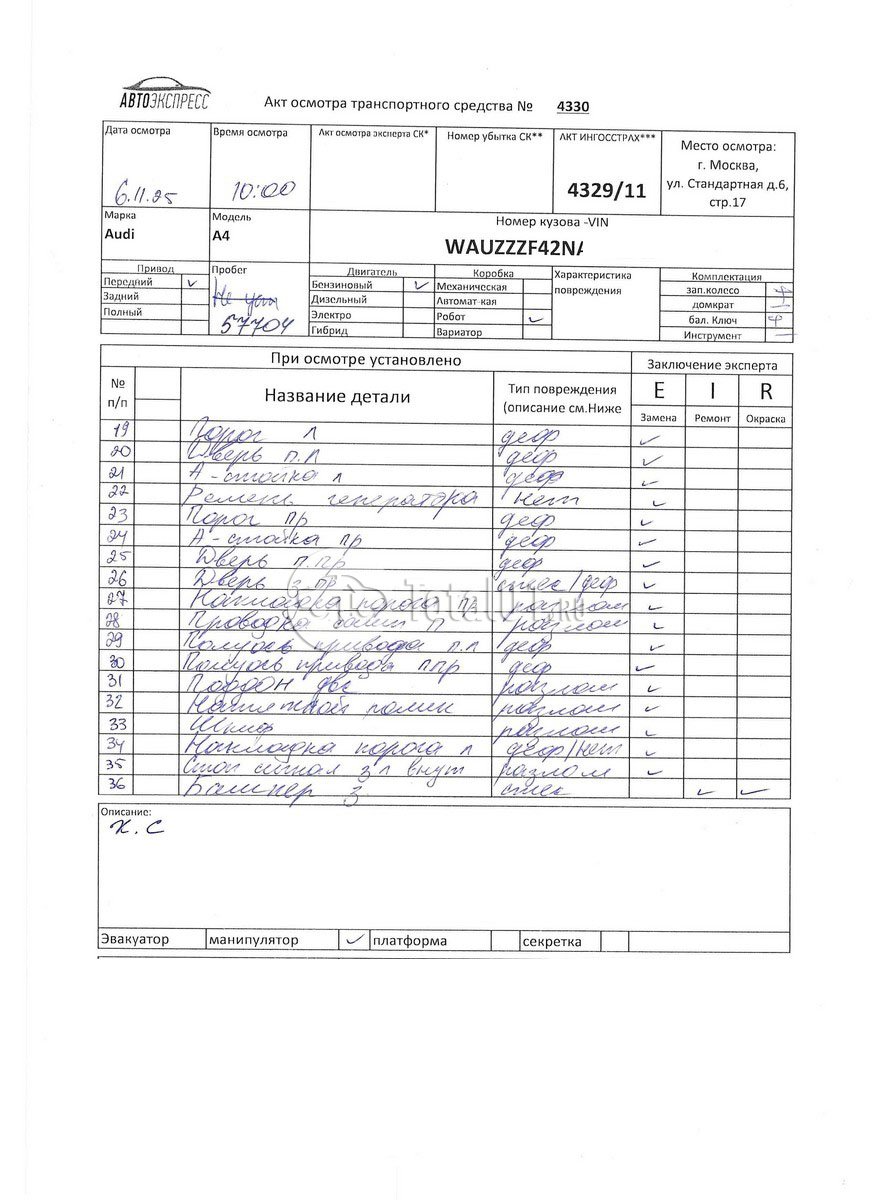 АВТОЭКСПРЕСС
Акт осмотра транспортного средства № 4330
Дата осмотра Время осмотра Акт осмотра эксперта СК* Номер убытка СК** АКТ ИНГОССТРАХ*** Место осмотра:
г. Москва,
6.11.25 10:00 4329/11 ул. Стандартная д.6,
стр.17
Марка Модель Номер кузова -VIN
Audi A4 WAUZZZF42N
Привод Пробег Двигатель Коробка Характеристика Комплектация
Передний ✓ Бензиновый ✓ Механическая повреждения зап.колесо +
Задний Не уст Дизельный Автомат-кая домкрат
Полный 57704 Электро Робот ✓ бал. Ключ +
Гибрид Вариатор Инструмент –
При осмотре установлено Заключение эксперта
№ п/п Название детали Тип повреждения (описание см.Ниже E I R
Замена Ремонт Окраска
19 Порог л деф ✓
20 Дверь п.л деф ✓
21 А-стойка л деф ✓
22 Ремень генератора нет ✓
23 Порог пр деф ✓
24 А-стойка пр деф ✓
25 Дверь п.пр деф ✓
26 Дверь з пр стес/деф ✓
27 Накладка порога пр разлом ✓
28 Проводка п разлом ✓
29 Полуось привода п.л деф ✓
30 Полуось привода п пр деф ✓
31 Поддон двс разлом ✓
32 Натяжной ролик разлом ✓
33 Шкив разлом ✓
34 Накладка порога л деф/нет ✓
35 Стоп сигнал з л внут разлом ✓
36 Бампер з стес ✓ ✓
TotalCar.RU
Описание:
Х. С
Эвакуатор манипулятор ✓ платформа секретка